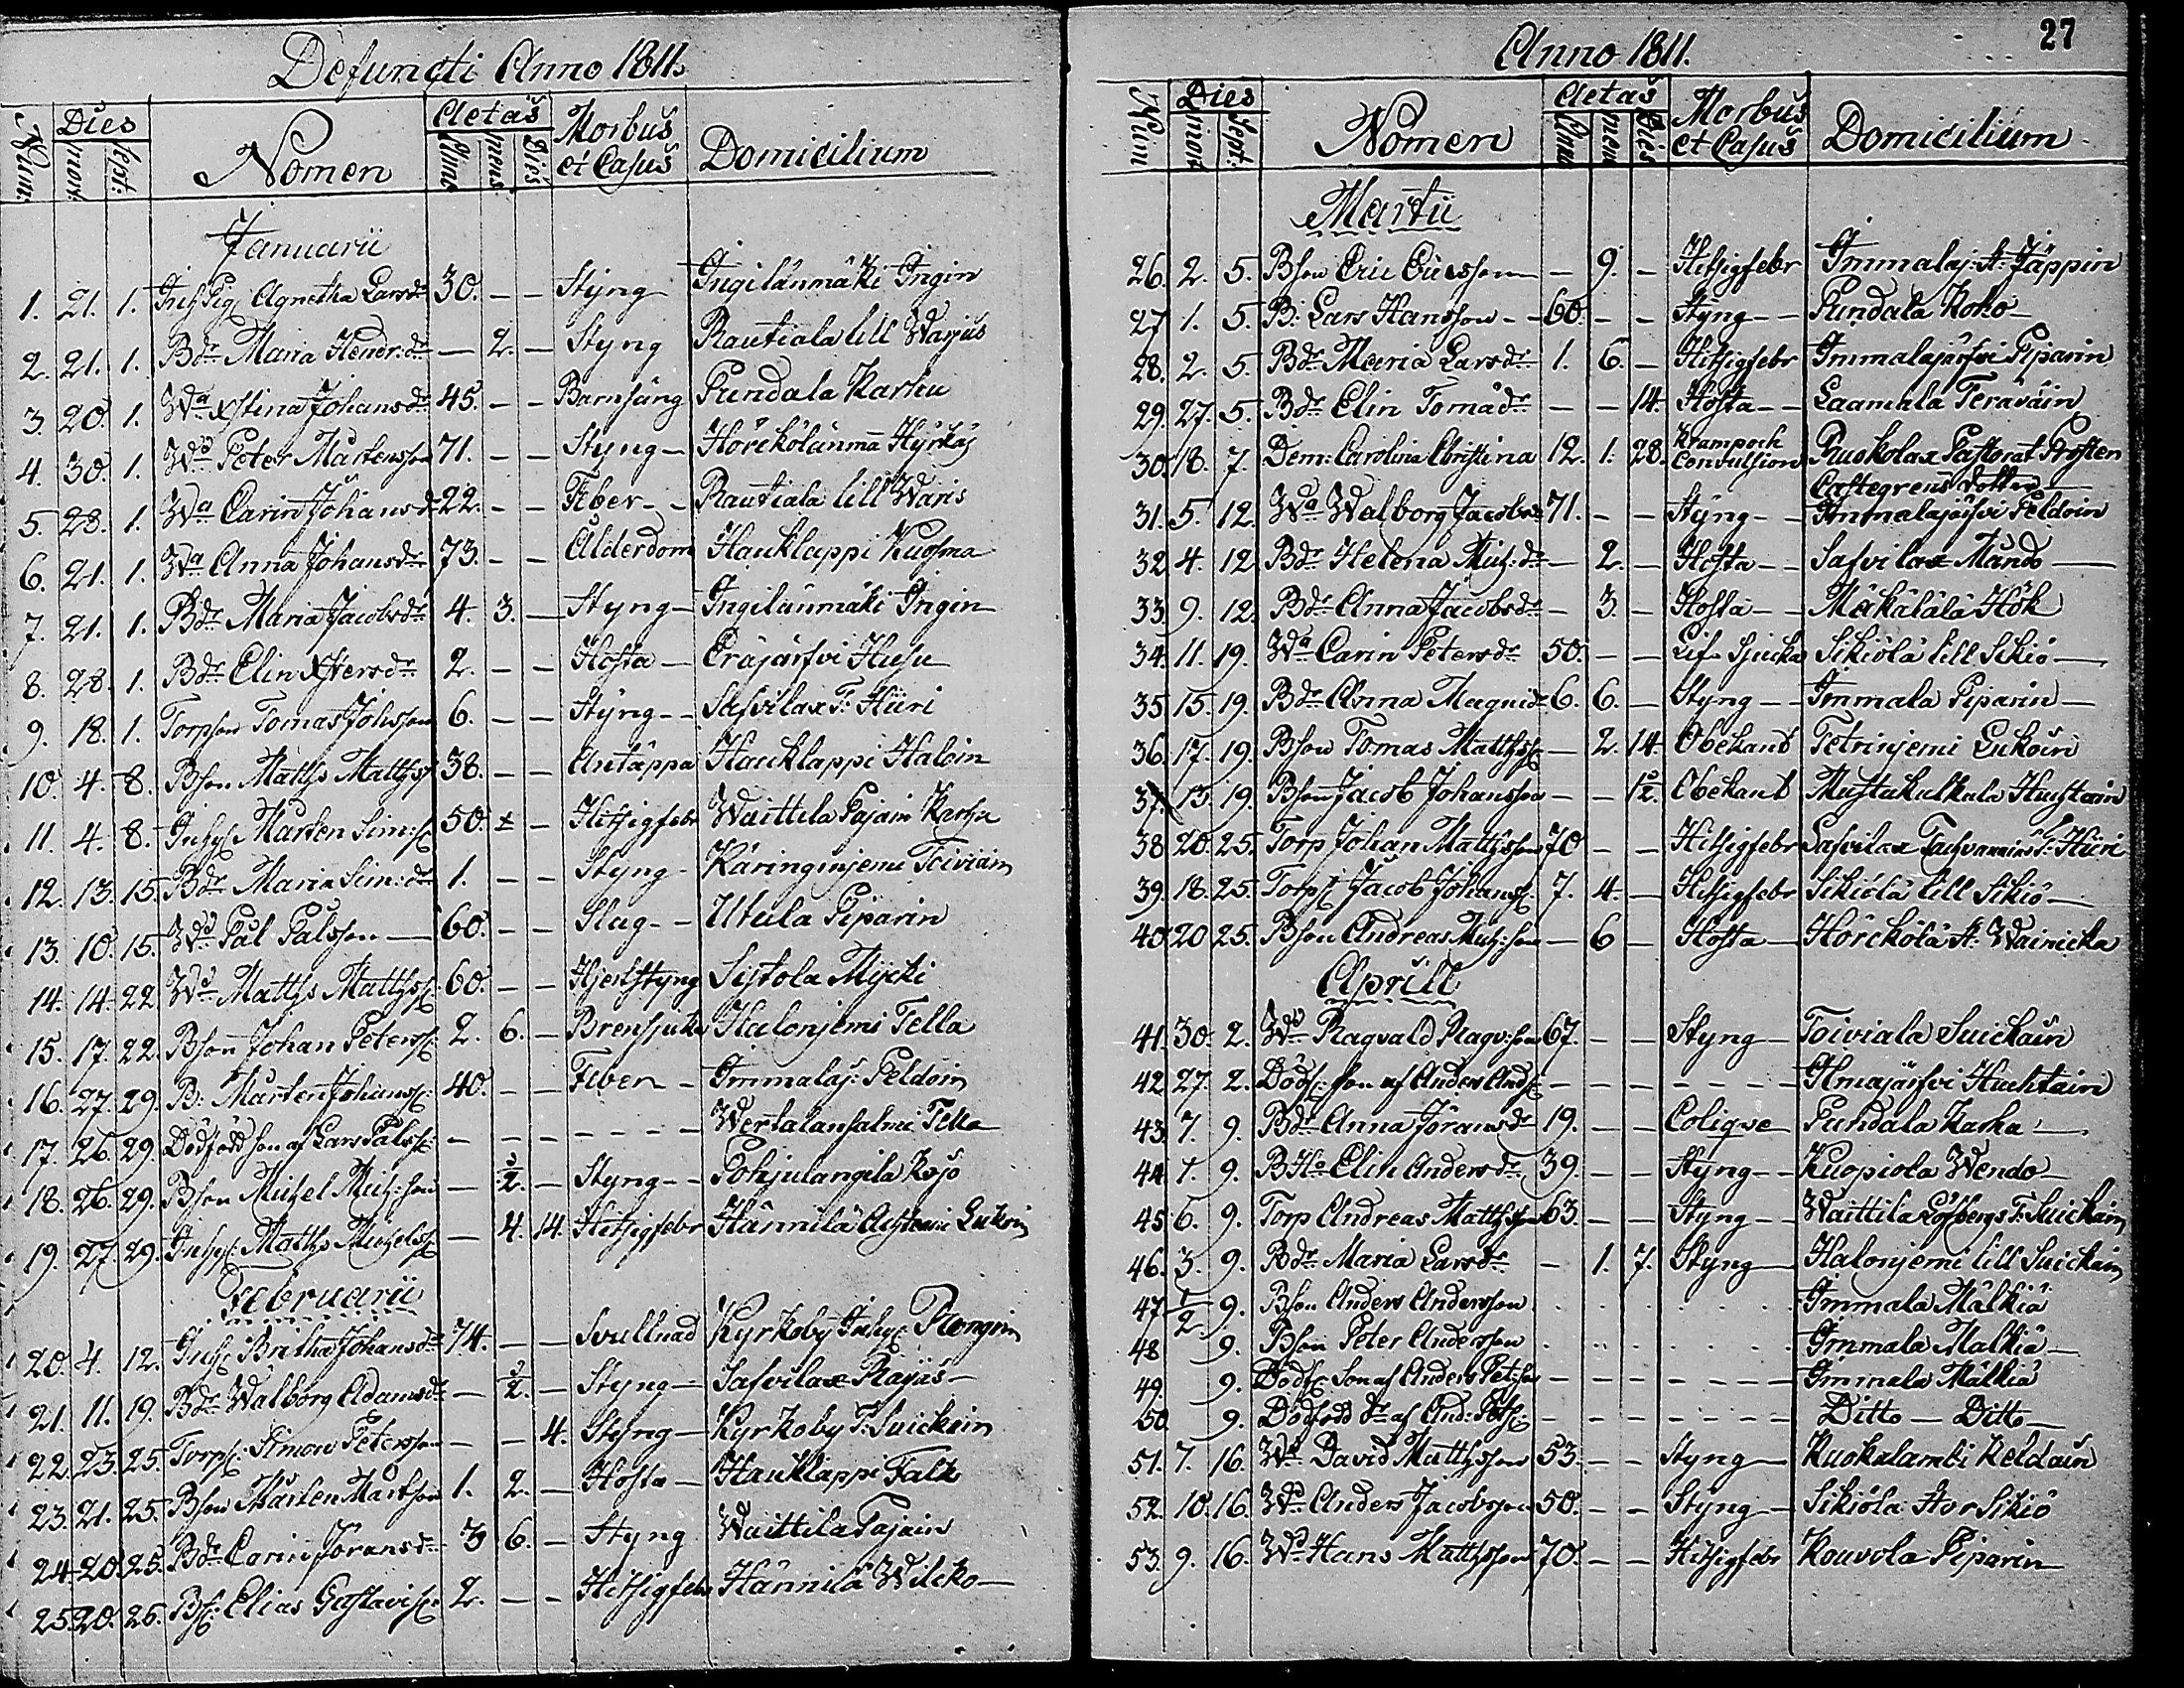 Defuncti Anno 1811.
Num: Dies Nomen Aetas Morbus et Casus Domicilium
mort: sept: Ann: mens: Dies
Januarii
1. 21. 1. Agnetha Larsdr 30. - - Styng Ingilänmäki Ingin
2. 21. 1. Bdr Maria Hendr:dr - 2. - Styng Rautiala lill Warjus
3. 20. 1. Wa Xstina Johansdr 45. - - Barnsäng Pundala Karhu
4. 30. 1. Wd Peter Mårtensson 71. - - Styng - Hörckölänmä Hyrkäs
5. 28. 1. Wa Carin Johansd 22. - - Feber - - Rautiala lill Waris
6. 21. 1. Wa Anna Johansdr 73. - - Ålderdom Hauklappi Kuosma
7. 21. 1. Bdr Maria Jacobsdr 4. 3. - Styng - Ingilänmäki Ingin
8. 28. 1. Bdr Elin Xstersdr 2. - - Hosta - Eräjärfvi Husu
9. 18. 1. Torpson Tomas Johsson 6. - - Styng - - Safvilax T: Hiiri
10. 4. 8. Bson Matths Matthss: 38. - - Antäppa Hauklappi Haloin
11. 4. 8. Mårten Sim:s: 50. - Hitsigfebr Waittila Pajain
12. 13. 15. Bdr Maria Sim:dr 1. - - Styng - Käringinjemi Toiviain
13. 10. 15. Wd Pål Pålsson - 60. - - Slag - - Utula Piparin
14. 14. 22 Wd Matths Matthss: 60. - - Hjertstyng Sistola Mycki
15. 17. 22. Bson Johan Peterss: 2. 6. - Brensjuka Halonjemi Tella
16. 27. 29. B: Mårten Johanss: 40. - - Feber - Immalaj: Peldoin
17. 26. 29. Dödfödd son af Lars Pålss: - - - - - - Wertalansalmi Tella
18. 26. 29. Bson Michel Mich:son - 3/2. - Styng - - Pohjulangila Kojo
19. 27. 29. Matths Michelss: - 4. 14. Hitsigfebr Hännilä Lukoin
Februarii
20. 4. 12. Britha Johansdr 74. - - Svullnad Kyrkoby
21. 11. 19. Bdr Walborg Adamsdr - 3/2. - Styng - Safvilax Rajas -
22. 23. 25. Torps: Simon Petersson - - 4. Styng - Kyrkoby T: Suickain
23. 21. 25. Bson Mårten Mårtson 1. 2. - Hosta - Hauklappi Falk
24. 20. 25. Bdr Carin Jöransdr 3 6. - Styng Waittila Pajain
25. 20. 25. Bs: Elias Gustavss: 2. - - Hitsigfebr Hännilä Wilcko -
27
Anno 1811.
Num Dies Nomen Aetas Morbus et Casus Domicilium
mort Sept: Anni men Dies
Martii
26. 2. 5. Bson Eric Ericsson - 9. - Hitsigfebr Immalaj: st: Jäppin
27 1. 5. B: Lars Hansson - - 60. - - Styng - - Pundala Koko -
28. 2. 5. Bdr Maria Larsdr 1. 6. - Hitsigfebr Immalajärfvi Piparin
29. 27. 5. Bdr Elin Tomadr - - 14. Hosta - - Laamala Teräväin
30. 18. 7. Dem: Carolina Christina 12. 1. 28. Kramp och Convulsion Ruokolax Pastorat Prosten
Castegrens dotter
31. 5. 12. Wa Walborg Jacobsdr 71. - - Styng - - Immalajärfvi Peldoin
32 4. 12 Bdr Helena Mich:dr - 2. - Hosta - - Safvilax Mando -
33. 9. 12. Bdr Anna Jacobsdr - 3. - Hosta - - Mäkälälä Hök
34. 11. 19. Wa Carin Petersdr 50. - - Lif Sjucka Sikiölä lill Sikiö -
35 15. 19. Bdr Anna Magnidr 6. 6. - Styng - - Immala Piparin -
36. 17. 19. Bson Tomas Matthss: - 2. 14. Obekant Petrinjemi Lukoin
37. 13 19. Bson Jacob Johansson - - 1/2. Obekant Mustukulkula Huhtain
38 20. 25. Torp Johan Matthsson 70 - - Hitsigfebr Safvilax T: Hiiri
39. 18. 25. Torps: Jacob Johanss: 7. 4. - Hitsigfebr Sikiölä lill Sikiö -
40. 20 25. Bson Andreas Mich:son - 6 - Hosta - Hörckölä st. Wainicka
Aprill
41. 30. 2. Wd Ragvald Ragv:son 67. - - Styng - Toiviala Suickain
42 27. 2. Dödf: son af Anders Ands: - - - - - - Ilmajärfvi Huhtain
43. 7. 9. Bdr Anna Jöransdr 19. - - Coliqve Pundala Karha -
44 1. 9. BHo Elin Andersdr 39. - - Styng - - Kuopiola Wendo -
45 6. 9. Torp Andreas Matthsson 63. - - Styng - - Waittila T: Suickain
46. 3. 9. Bdr Maria Larsdr - 1. 7. Styng - Halonjemi lill Suickain
47. 1/2 9. Bson Anders Andersson Immala Mälkiä
48 9. Bson Peter Andersson Immala Mälkiä -
49. 9. Dödf: Son af Anders Pet:son - - - - - - Immala Mälkiä
50 9. Dödfödd dr af And: Pets: - - - - - - Ditto - Ditto -
51. 7. 16. Wd David Matthsson 53. - - Styng - Kuokalambi Keldain
52. 10. 16. Wd Anders Jacobsson 50. - - Styng - Sikiölä Stor Sikiö
53. 9. 16. Wd Hans Matthsson 70. - - Hitsigfebr Kouvola Piparin -